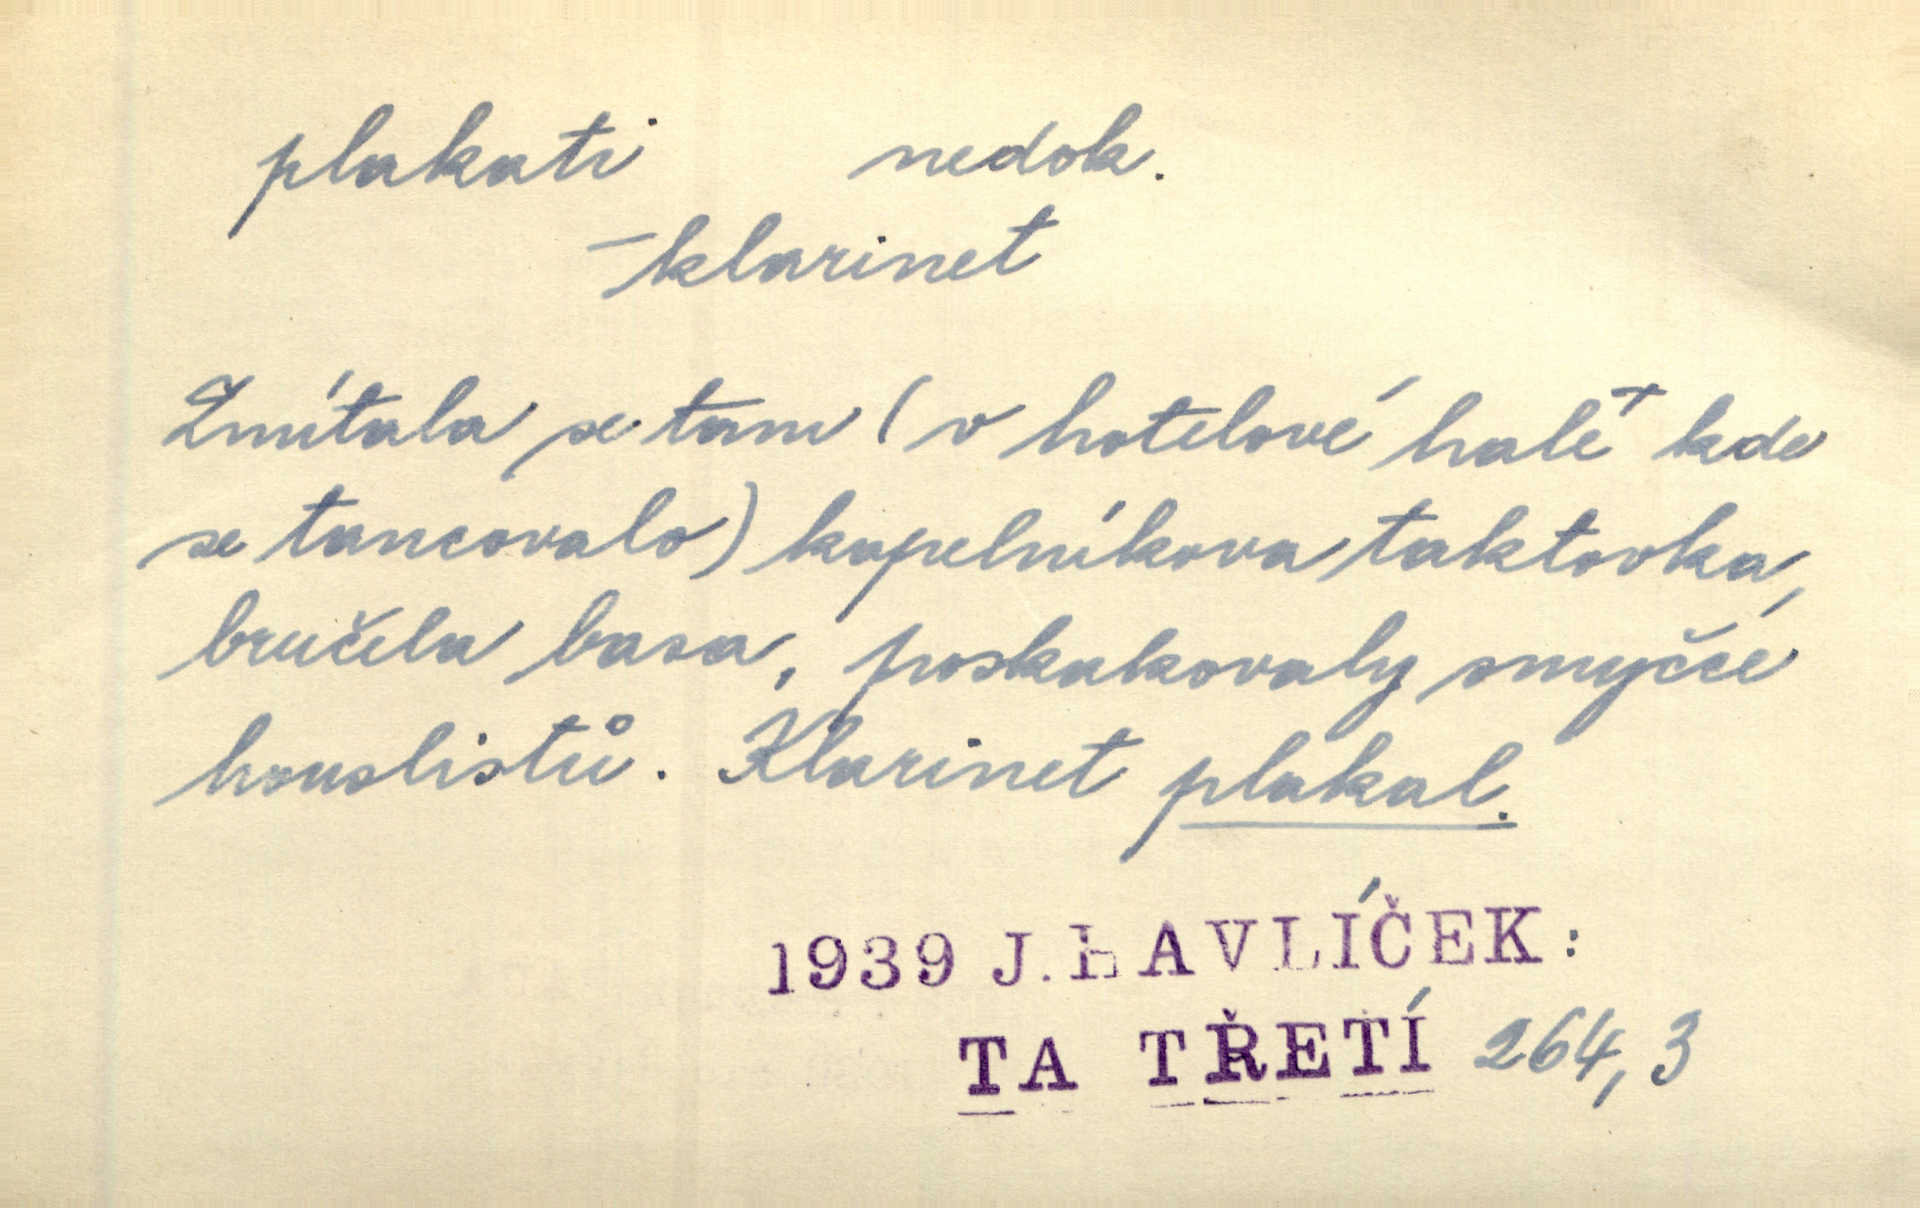 plakati nedok.
– klarinet
Zmítala se tam (v hotelové hale+ kde
se tancovalo) kapelníkova taktovka,
bručela basa, poskakovaly smyčce
houslistů. Klarinet plakal.
1939 J. HAVLÍČEK:
TA TŘETÍ 264,3